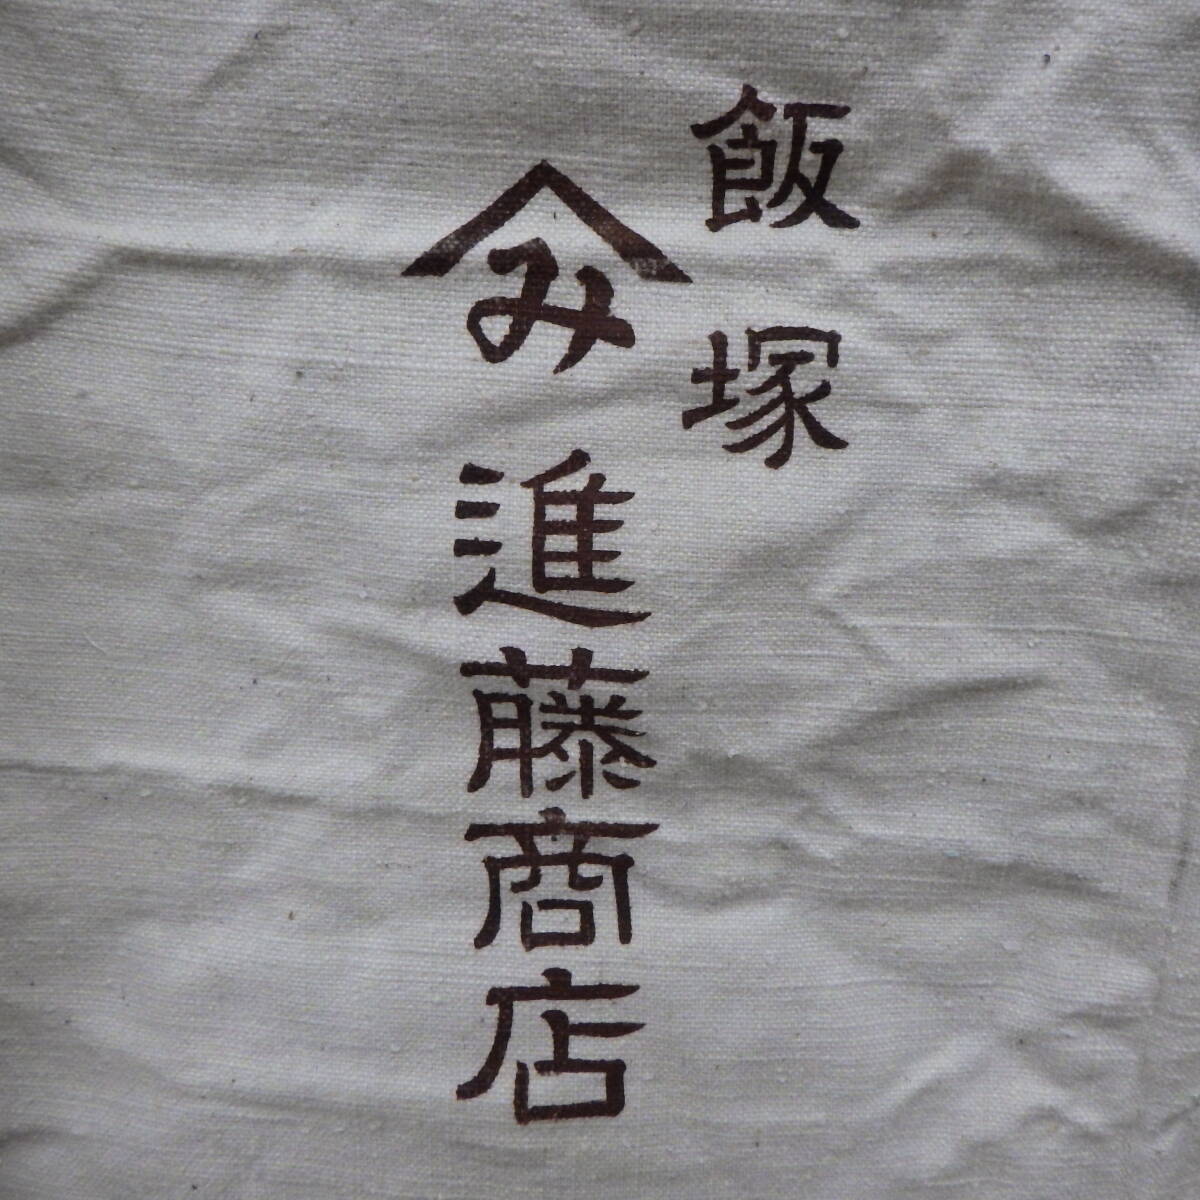 飯塚
み進藤商店